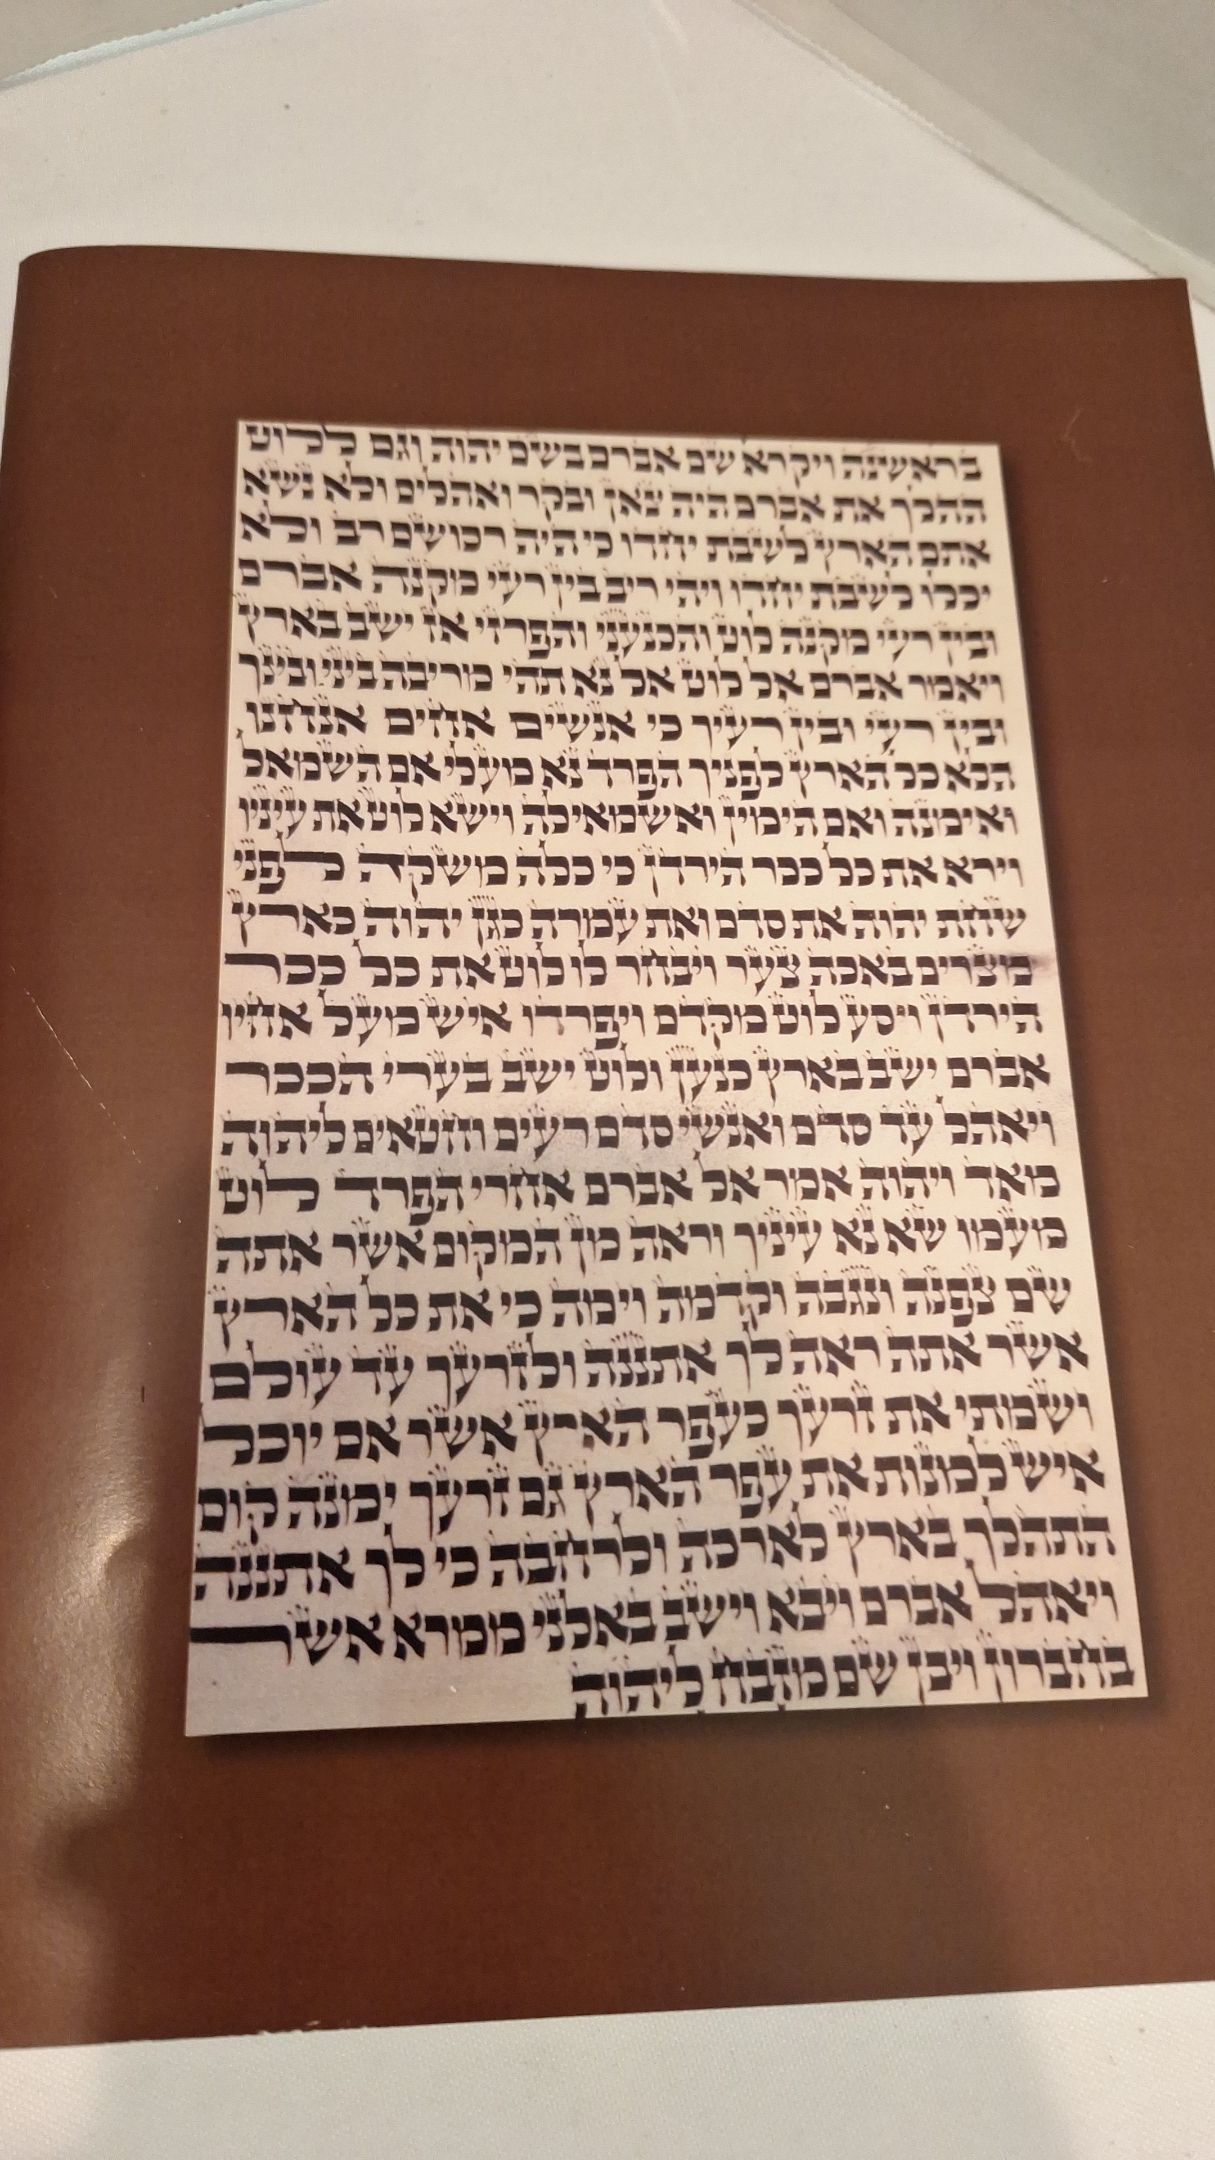 בראשנה ויקרא שם אברם בשם יהוה וגם ללוט
ההלך את אברם היה צאן ובקר ואהלים ולא נשא
אתם הארץ לשבת יחדו כי היה רכושם רב ולא
יכלו לשבת יחדו ויהי ריב בין רעי מקנה אברם
ובין רעי מקנה לוט והכנעני והפרזי אז ישב בארץ
ויאמר אברם אל לוט אל נא תהי מריבה ביני ובינך
ובין רעי ובין רעיך כי אנשים אחים אנחנו
הלא כל הארץ לפניך הפרד נא מעלי אם השמאל
ואימנה ואם הימין ואשמאילה וישא לוט את עיניו
וירא את כל ככר הירדן כי כלה משקה לפני
שחת יהוה את סדם ואת עמרה כגן יהוה כארץ
מצרים באכה צער ויבחר לו לוט את כל ככר
הירדן ויסע לוט מקדם ויפרדו איש מעל אחיו
אברם ישב בארץ כנען ולוט ישב בערי הככר
ויאהל עד סדם ואנשי סדם רעים וחטאים ליהוה
מאד ויהוה אמר אל אברם אחרי הפרד לוט
מעמו שא נא עיניך וראה מן המקום אשר אתה
שם צפנה ונגבה וקדמה וימה כי את כל הארץ
אשר אתה ראה לך אתננה ולזרעך עד עולם
ושמתי את זרעך כעפר הארץ אשר אם יוכל
איש למנות את עפר הארץ גם זרעך ימנה קום
התהלך בארץ לארכה ולרחבה כי לך אתננה
ויאהל אברם ויבא וישב באלני ממרא אשר
בחברון ויבן שם מזבח ליהוה